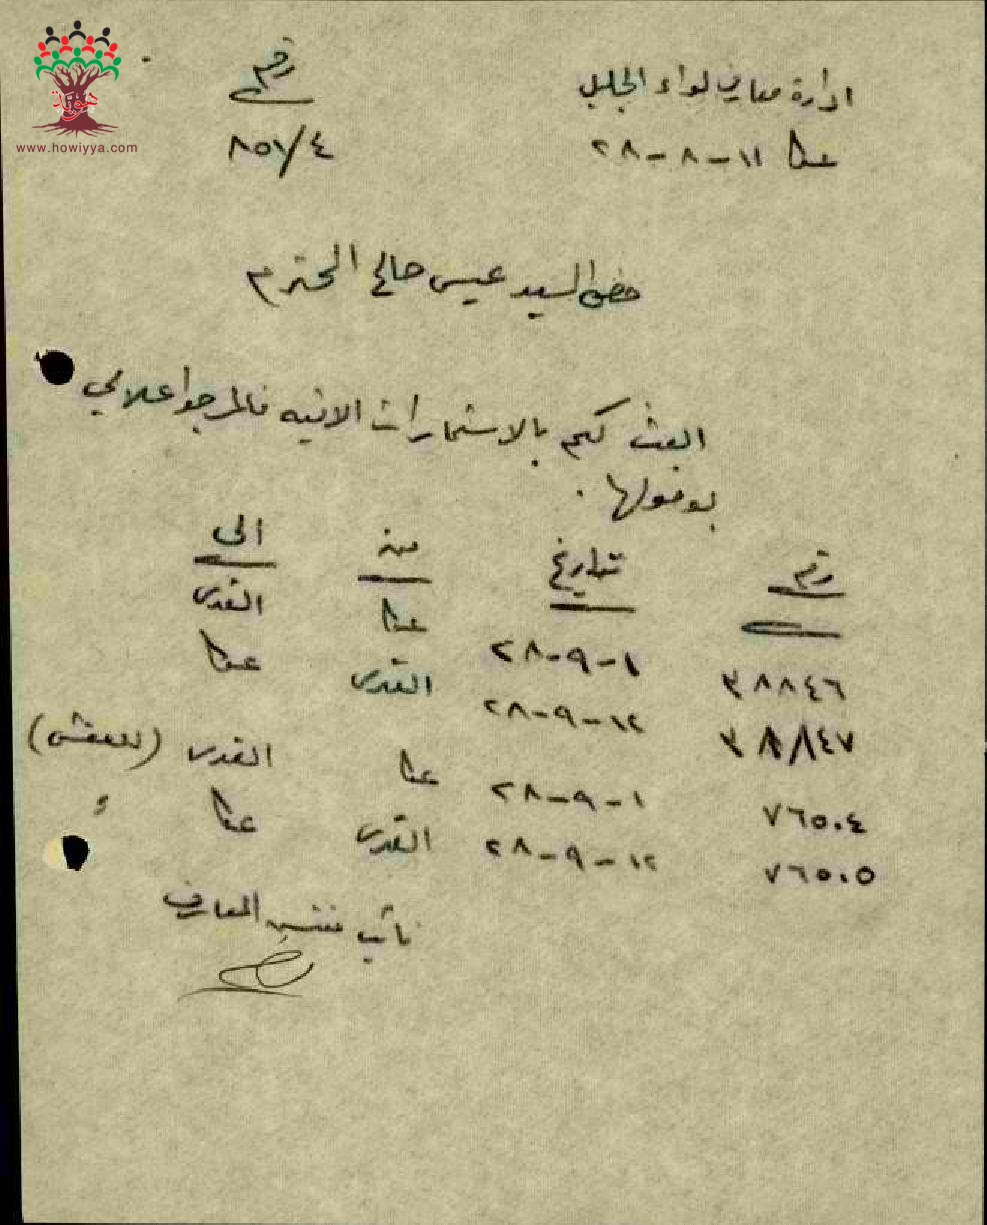 هوية
www.howiyya.com
ادارة معارف لواء الجليل
عكا ١١-٨-٢٨
رقم
٨٥١/٤
حضرة السيد عيسى صالح المحترم
ابعث لكم بالاستمارات الاتيه فالمرجو اعلامي
بوصولها .
رقم تاريخ من الى
٣٨٨٤٦ ١-٩-٢٨ عكا القدس
٣٨٨٤٧ ١٢-٩-٢٨ القدس عكا
٧٦٥٠٤ ١-٩-٢٨ عكا القدس (للعفش)
٧٦٥٠٥ ١٢-٩-٢٨ القدس عكا "
نائب مفتش المعارف